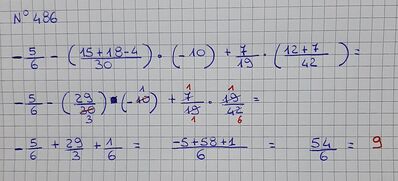 N° 486
-5/6 - (15+18-4/30) • (-10) + 7/19 • (12+7/42) =
-5/6 - (29/30 3) • (-10 1) + 7 1/19 1 • 19 1/42 6 =
-5/6 + 29/3 + 1/6 = -5+58+1/6 = 54/6 = 9